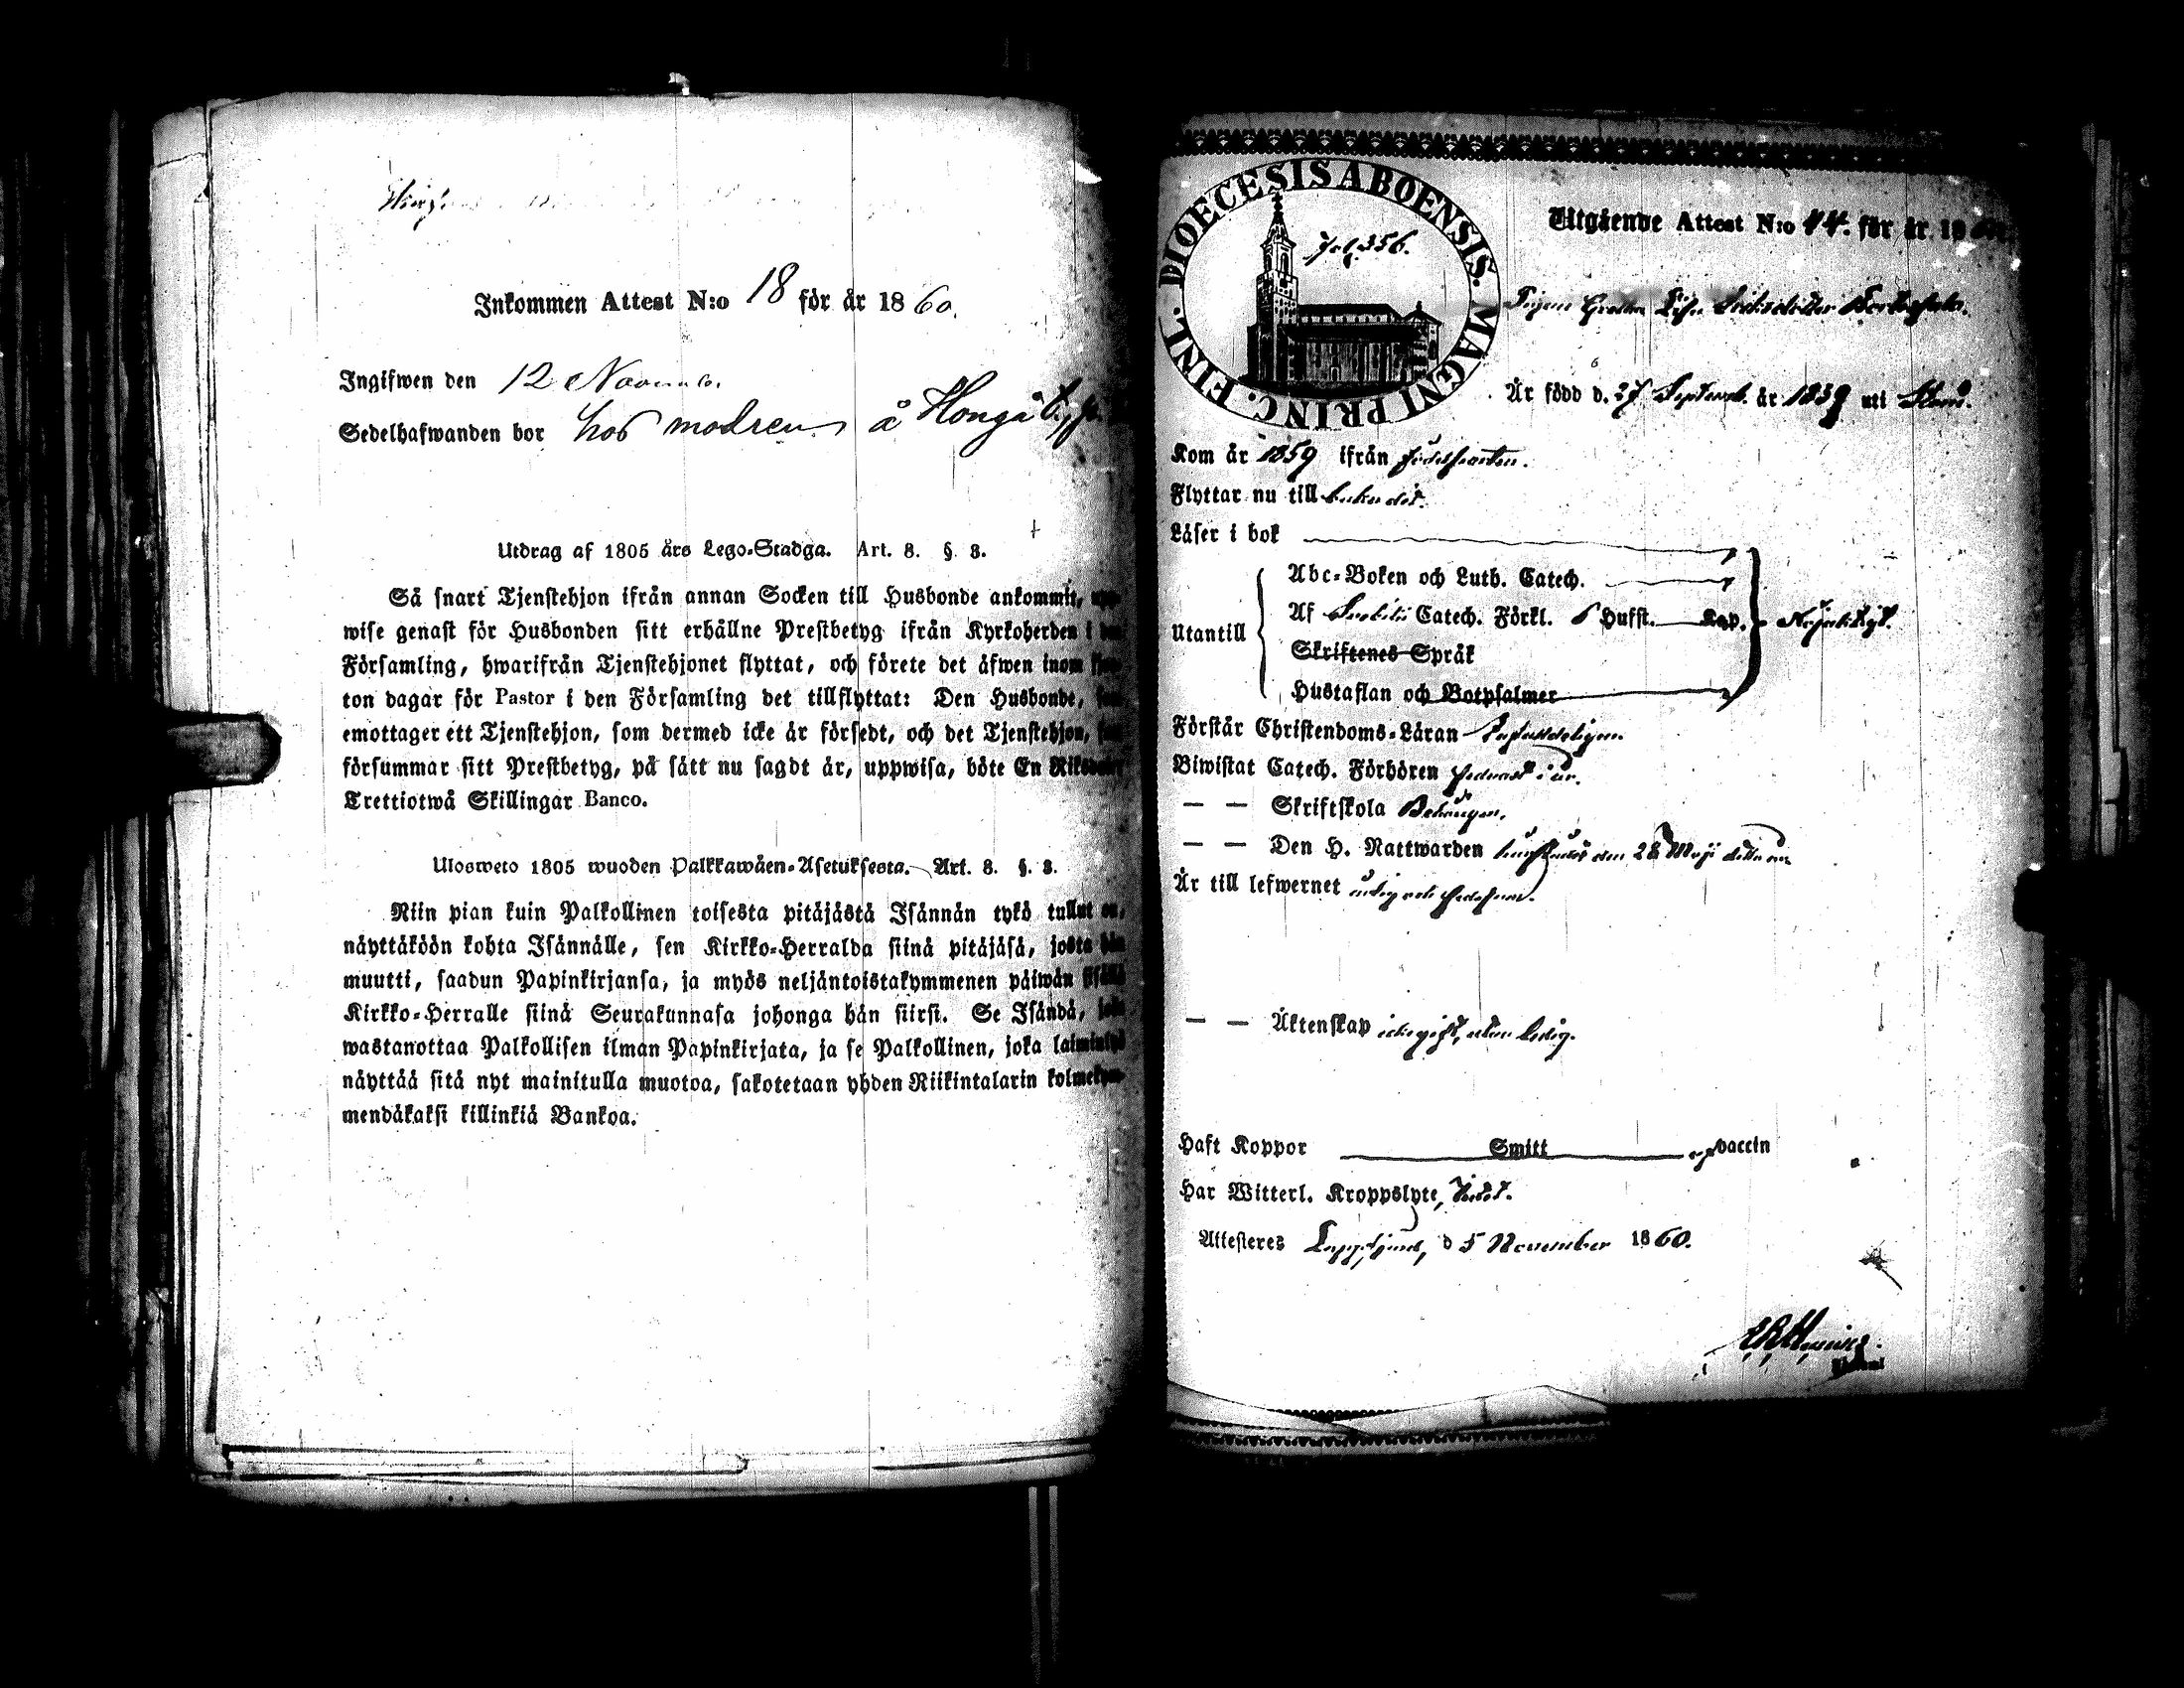 Inkommen Attest N:o 18 för år 1860.
Ingifwen den 12 Novemb.
Sedelhafwanden bor hos modren å Hongå by
Utdrag af 1805 års Lego-Stadga. Art. 8. §. 3.
Så snart Tjenstehjon ifrån annan Socken till Husbonde ankommit, upp-
wise genast för Husbonden sitt erhållne Prestbetyg ifrån Kyrkoherden i den
Församling, hwarifrån Tjenstehjonet flyttat, och förete det äfwen inom fjor-
ton dagar för Pastor i den Församling det tillflyttat: Den Husbonde, som
emottager ett Tjenstehjon, som dermed icke är försedt, och det Tjenstehjon, som
försummar sitt Prestbetyg, på sätt nu sagdt är, uppwisa, böte En Riksdaler
Trettiotwå Skillingar Banco.
Ulosweto 1805 wuoden Palkkawäen-Asetuksesta. Art. 8. §. 3.
Niin pian kuin Palkollinen toisesta pitäjästä Isännän tykö tullut on,
näyttäköön kohta Isännälle, sen Kirkko-Herralda siinä pitäjäsä, josta hän
muutti, saadun Papinkirjansa, ja myös neljäntoistakymmenen päiwän sisällä
Kirkko-Herralle siinä Seurakunnasa johonga hän siirsi. Se Isändä, joka
wastanottaa Palkollisen ilman Papinkirjata, ja se Palkollinen, joka laiminlyö
näyttää sitä nyt mainitulla muotoa, sakotetaan yhden Riikintalarin kolmekym-
mendäkaksi killinkiä Bankoa.
FINL. DIOECESIS ABOENSIS. MAGNI PRINC.
Fol. 356.
Utgående Attest N:o 44. för år 18
Pigan Greta Lisa
Är född d. 27 Septemb. år 1839 uti
Kom år 1859 ifrån födelseorten.
Flyttar nu till
Läser i bok
Utantill
Abc-Boken och Luth. Catech.
Af Svebilii Catech. Förkl. 6 Hufst. Kap. Nöjaktigt.
Skriftenes Språk
Hustaflan och Botpsalmer
Förstår Christendoms-Läran
Biwistat Catech. Förhören
— — Skriftskola Behörigen.
— — Den H. Nattwarden den 28 Maji detta år
Är till lefwernet
— — Äktenskap icke gift, utan ledig.
Haft Koppor Smitt vaccin
Har Witterl. Kroppslyte,
Attesteres Lappfjerd, d 5 November 1860.